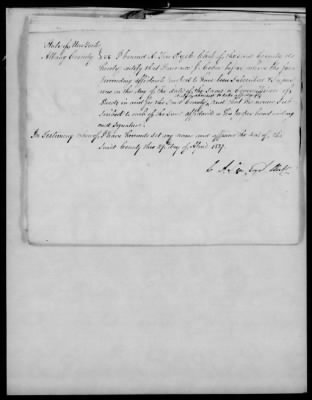 State of New York
Albany County SS I Conrad A. Ten Eyck Clerk of the said County do
hereby certify that                  before whom the
foregoing affidavits                  to have been Subscribed & Sworn
was on the day of the date of the same a Commissioner of
Deeds in and for the Said County, and that the name Sub
scribed to each of the said affidavits is his proper hand writing
and signature.
In Testimony whereof I have hereunto set my name and affixed the seal of the
Said County this 29 day of April 1837
C A Ten Eyck Clerk